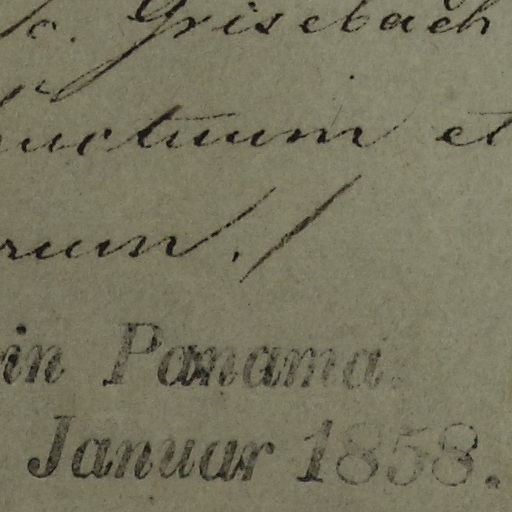 c. Grisebach
uctuum et
rum./
in Panama.
Januar 1858.